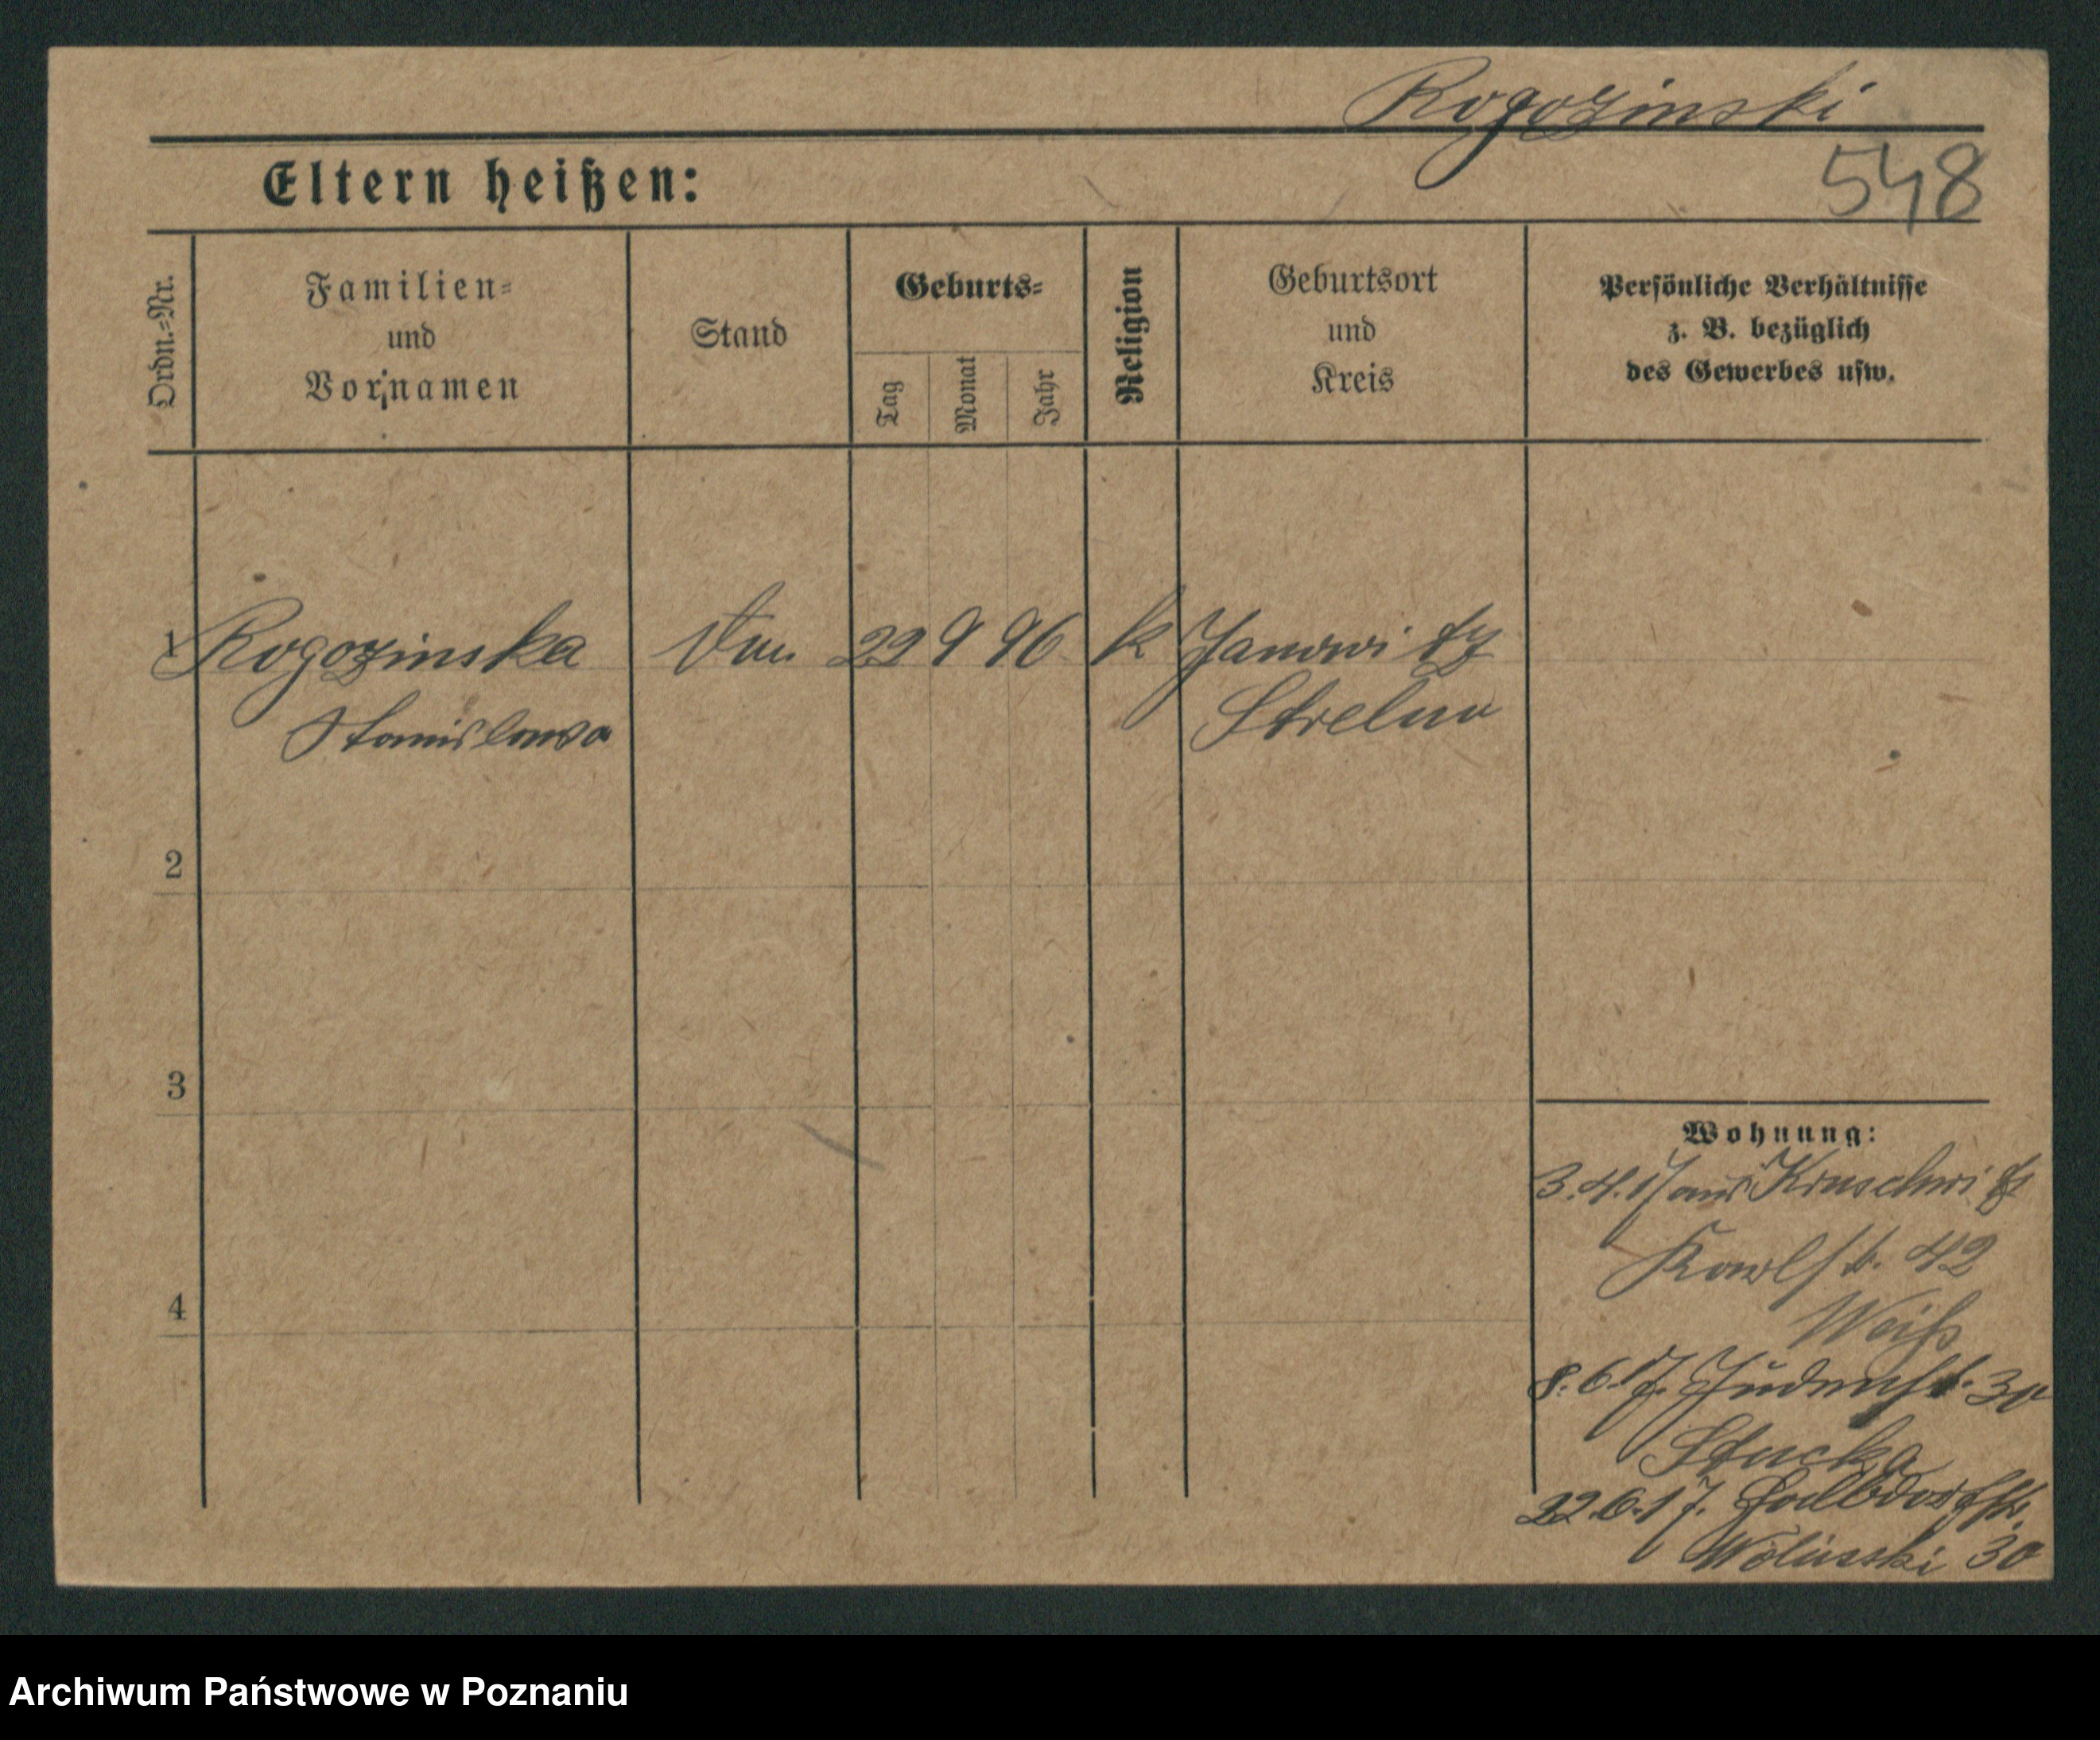 Rogozinski
548
Eltern heißen:
Ordn.=Nr.
Familien=
und
Vornamen
Stand
Geburts=
Tag
Monat
Jahr
Religion
Geburtsort
und
Kreis
Persönliche Verhältnisse
z. B. bezüglich
des Gewerbes usw.
1 Rogozinska 22 9 96 k Janowitz
Stanislawa Strelno
2
3
4
Wohnung:
3.4.17 aus Kruschwitz
42
Weiß
8.6.17. Judenst. 30
Stucka
22.6.17.
Wolinski 30
Archiwum Państwowe w Poznaniu